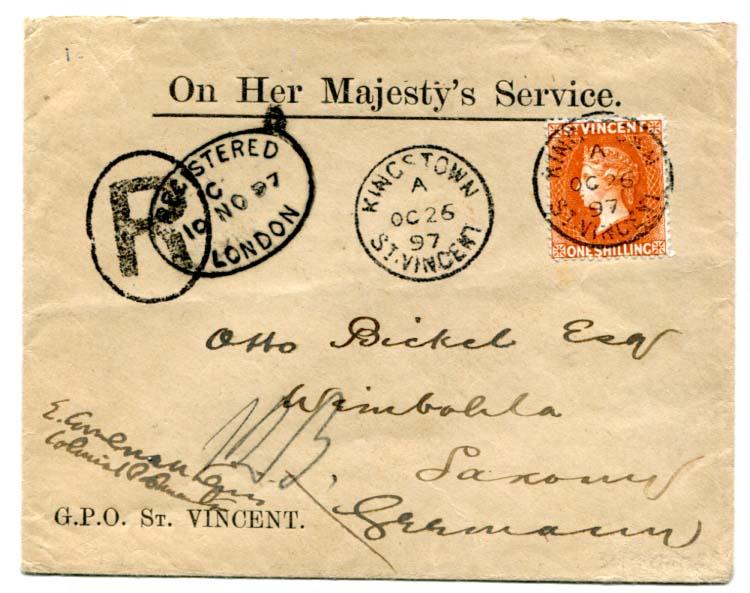 On Her Majesty's Service.
R
REGISTERED
C
10 NO 97
LONDON
KINGSTOWN
A
OC 26
97
ST. VINCENT
ST VINCENT
ONE SHILLING
KINGSTOWN
A
OC 26
97
ST. VINCENT
Otto Bickel Esq
Saxony
Germany
Colonial
G.P.O. ST. VINCENT.